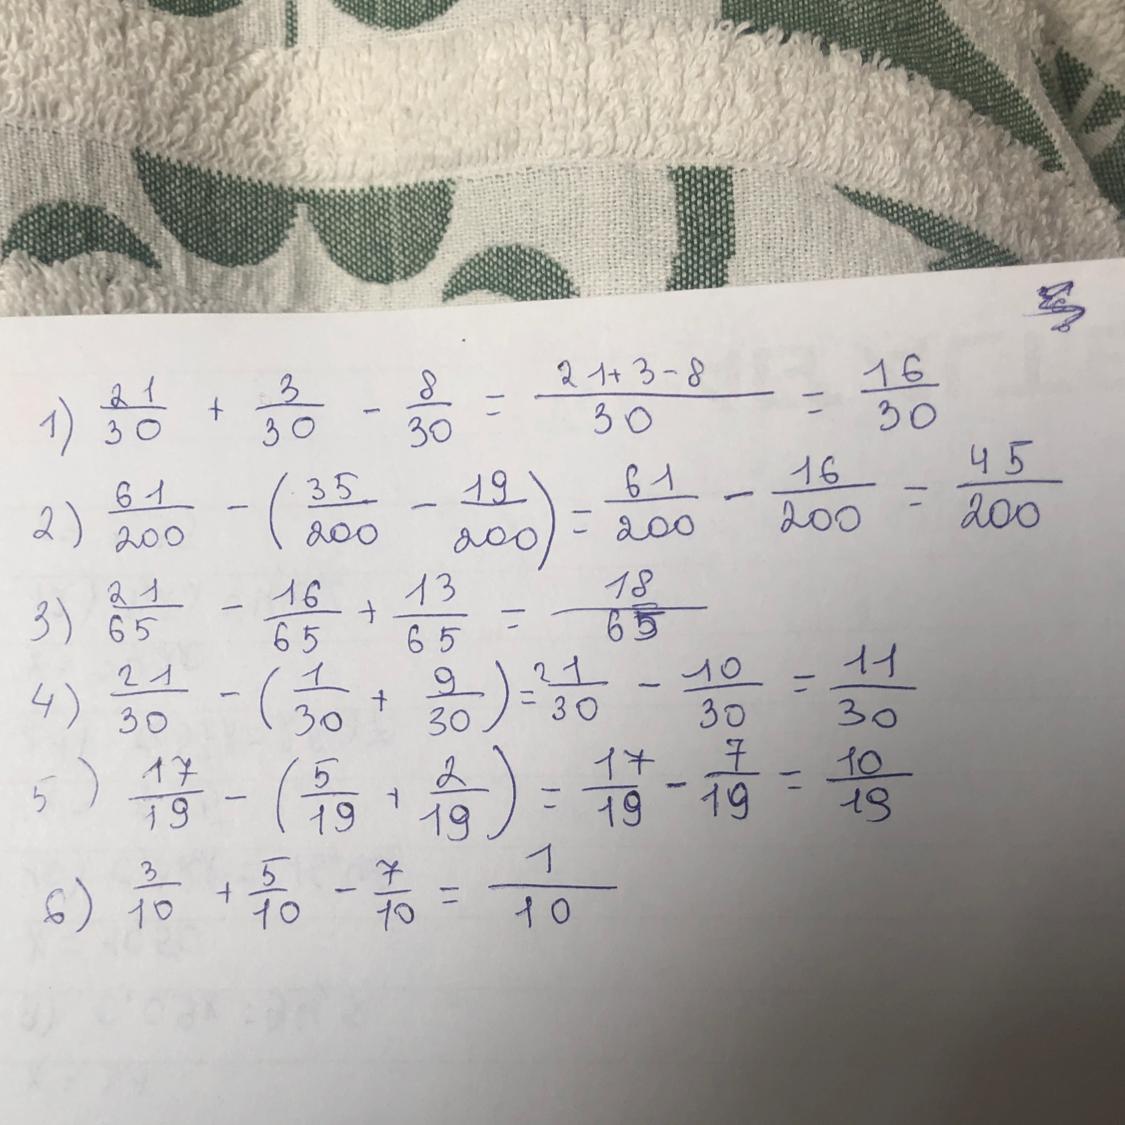 1) 21/30 + 3/30 - 8/30 = 21+3-8/30 = 16/30
2) 61/200 - (35/200 - 19/200) = 61/200 - 16/200 = 45/200
3) 21/65 - 16/65 + 13/65 = 18/65
4) 21/30 - (1/30 + 9/30) = 21/30 - 10/30 = 11/30
5) 17/19 - (5/19 + 2/19) = 17/19 - 7/19 = 10/19
6) 3/10 + 5/10 - 7/10 = 1/10